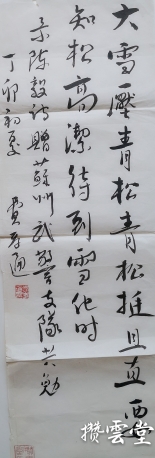 大雪壓青松青松挺且直要
知松高潔待到雪化时
录陈毅诗赠蘇州武警支隊共勉
丁卯初夏 費孝通
攒雲堂